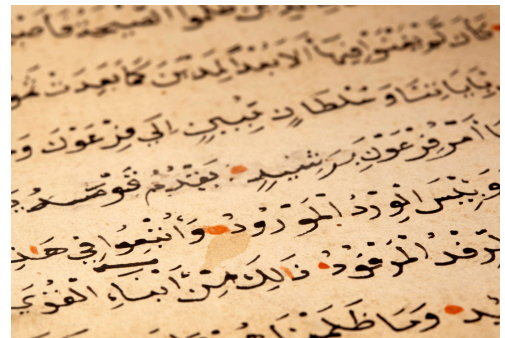 ظلموا الصيحة فأصبـ
كأن لم يغنوا فيها ألا بعدا لمدين كما بعدت ثمو
باياتنا وسلطان مبين إلى فرعون و
ا أمر فرعون برشيد يقدم قومه يـ
وبئس الورد المورود وأتبعوا في هذ
الرفد المرفود ذلك من أنباء القرى
يد وما ظلمنا